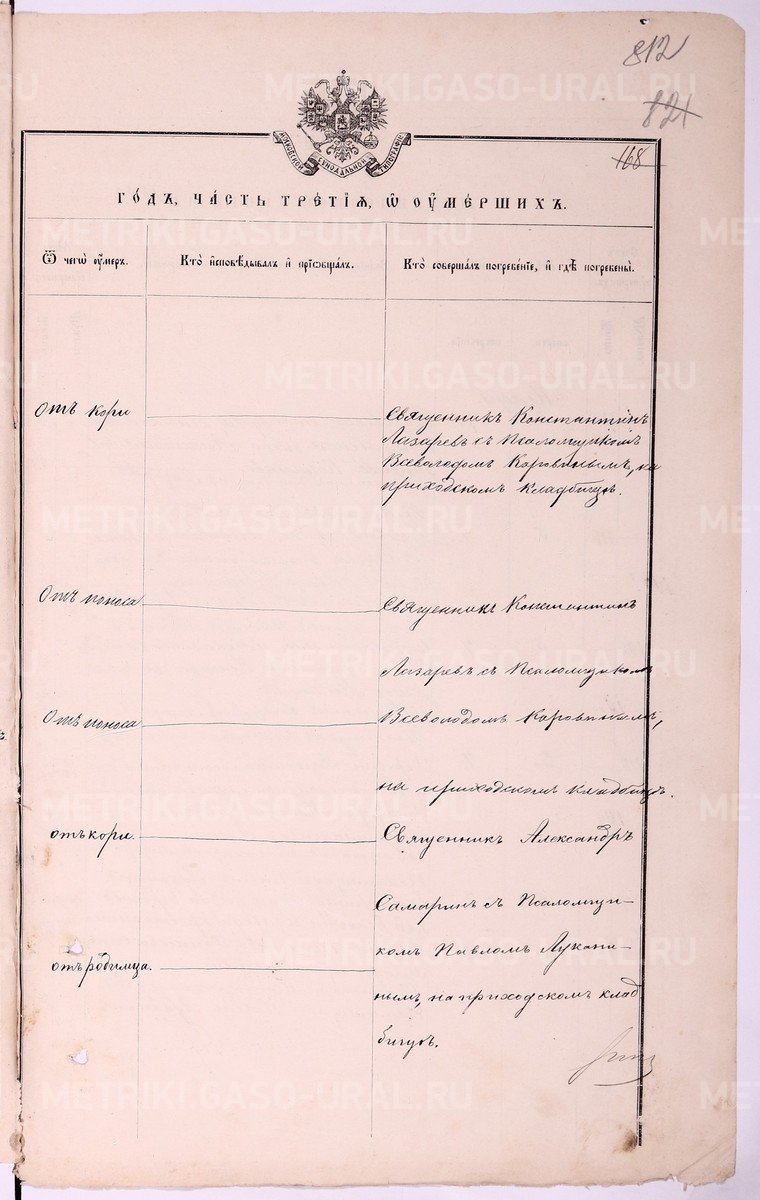 812
821
168
МОСКОВСКОЙ СѴНОДАЛЬНОЙ ТИПОГРАФІИ
ГО́ДЪ, ЧА́СТЬ ТРЕ́ТІѦ, Ѡ҆ ОУ҆МЕ́РШИХЪ.
Ѿ чегѡ̀ оу҆́мер.
Кто̀ и҆сповѣ́дывалъ и҆ прїѡбща́лъ.
Кто̀ соверша́лъ погребе́нїе, и҆ гдѣ̀ погребены̀.
Отъ кори
Священникъ Константинъ
Лазаревъ съ Псаломщикомъ
Всеволодомъ Коровинымъ, на
приходскомъ кладбищѣ.
Отъ поноса
Священникъ Константинъ
Лазаревъ съ Псаломщикомъ
Отъ поноса
Всеволодомъ Коровинымъ,
на приходскомъ кладбищѣ.
отъ кори.
Священникъ Александръ
Самаринъ съ Псаломщи-
комъ Павломъ Лукани-
отъ родимца.
нымъ, на приходскомъ клад
бищѣ.
METRIKI.GASO-URAL.RU